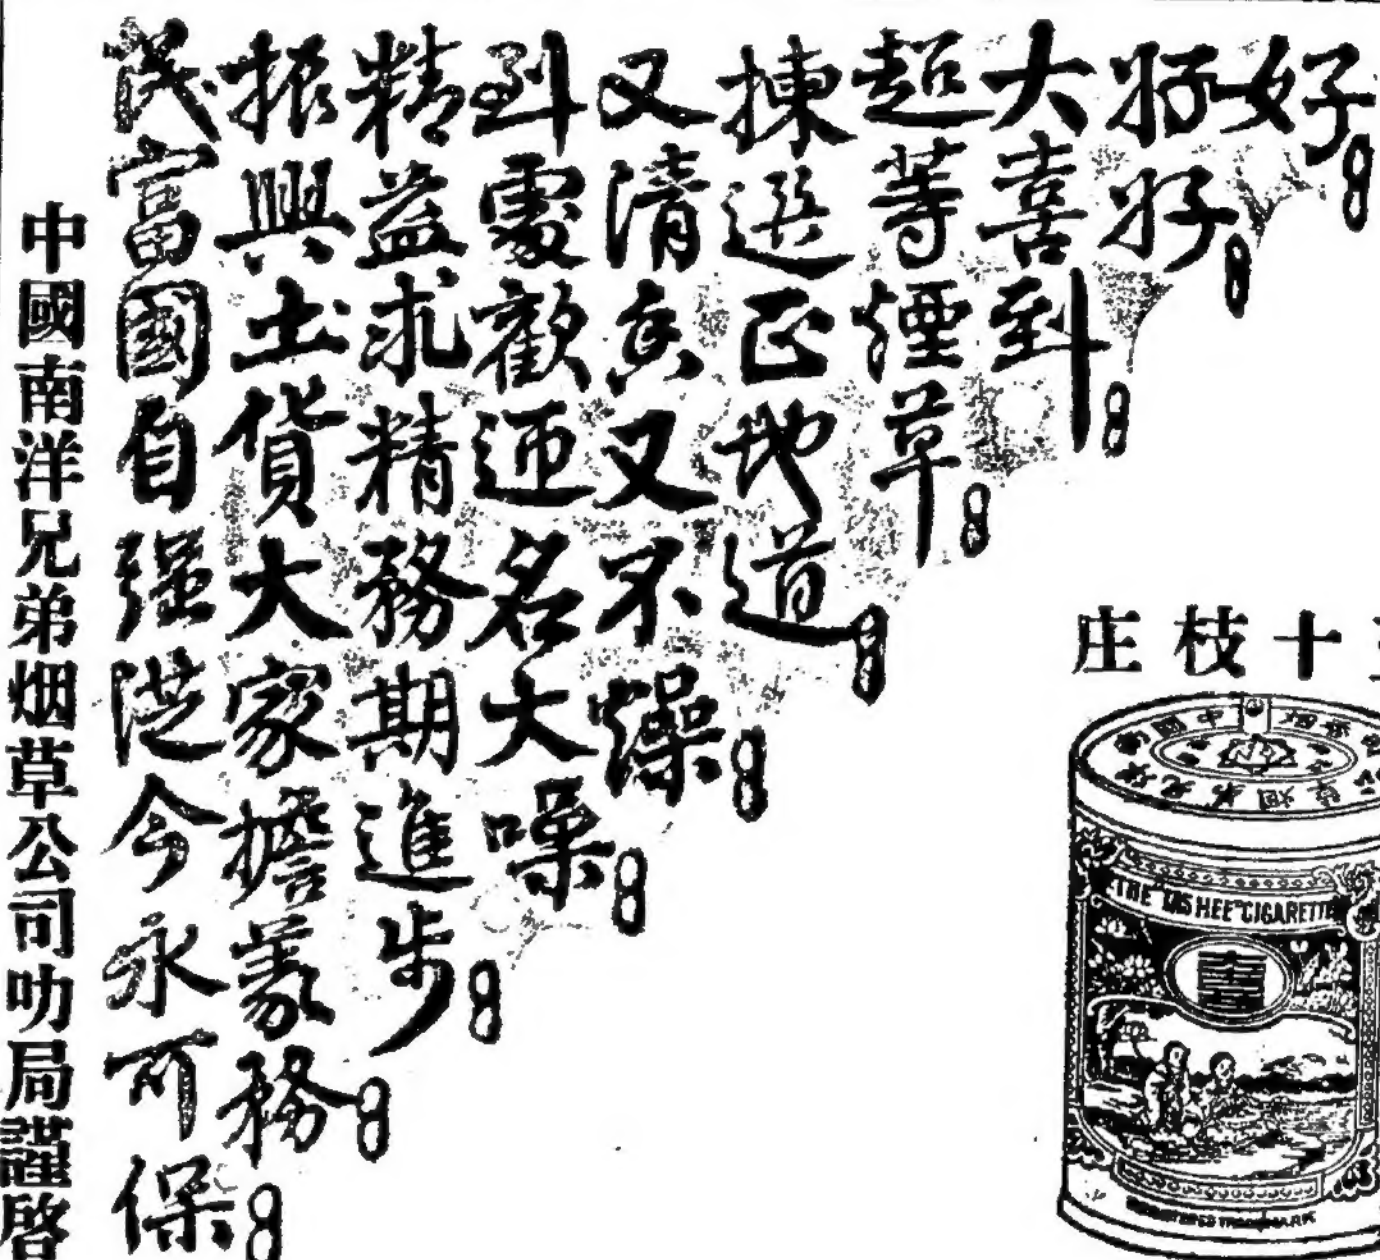 好
好好
大喜到
超等煙草
揀選正地道
又清香又不燥
到處歡迎名大噪
精益求精務期進步
振興土貨大家擔義務
民富國自强從今永可保
中國南洋兄弟烟草公司叻局謹啓
十枝庄
THE "TAS HEE" CIGARETTE
REGISTERED TRADE MARK